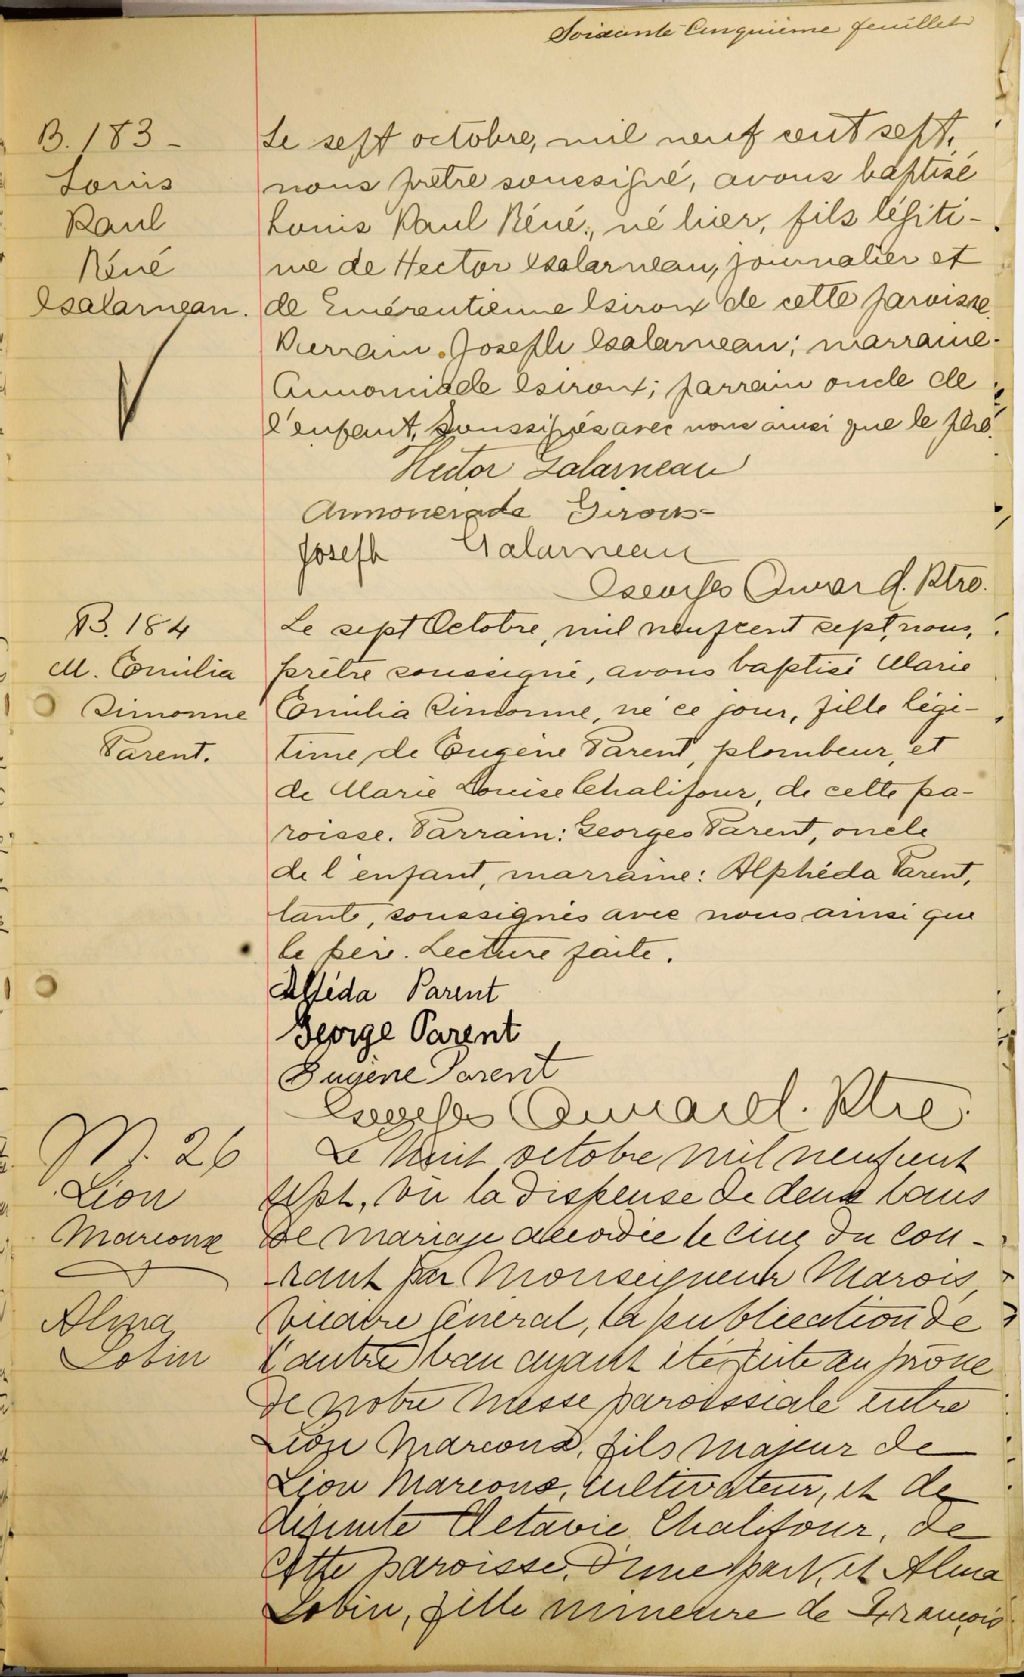 Soixante Cinquième feuillet
B. 183 -
Louis
Paul
Réné
Galarneau.
Le sept octobre, mil neuf cent sept,
nous prêtre soussigné, avons baptisé
Louis Paul Réné, né hier, fils légiti-
me de Hector Galarneau, journalier et
de Emérentienne Giroux de cette paroisse.
Parrain Joseph Galarneau; marraine
Annonciade Giroux; parrain oncle de
l'enfant, Soussignés avec nous ainsi que le père.
Hector Galarneau
Annonciade Giroux
Joseph Galarneau
Georges Ptre.
B. 184
M. Emilia
Simonne
Parent.
Le sept Octobre, mil neuf cent sept, nous,
prêtre soussigné, avons baptisé Marie
Emilia Simonne, né ce jour, fille légi-
time de Eugène Parent, plombeur, et
de Marie Louise Chalifour, de cette pa-
roisse. Parrain: Georges Parent, oncle
de l'enfant, marraine: Alphéda Parent,
tante, soussignés avec nous ainsi que
le père. Lecture faite.
Alféda Parent
George Parent
Eugène Parent
Georges Ptre.
M. 26
Léon
Marcoux
Alma
Lobin
Le huit octobre mil neuf cent
sept, vu la dispense de deux bans
de mariage accordée le cinq du cou-
rant par Monseigneur Marois,
Vicaire Général, la publication de
l'autre ban ayant été faite au prône
de notre Messe paroissiale entre
Léon Marcoux, fils majeur de
Léon Marcoux, cultivateur, et de
défunte Octavie Chalifour, de
cette paroisse, d'une part, et Alma
Lobin, fille mineure de François